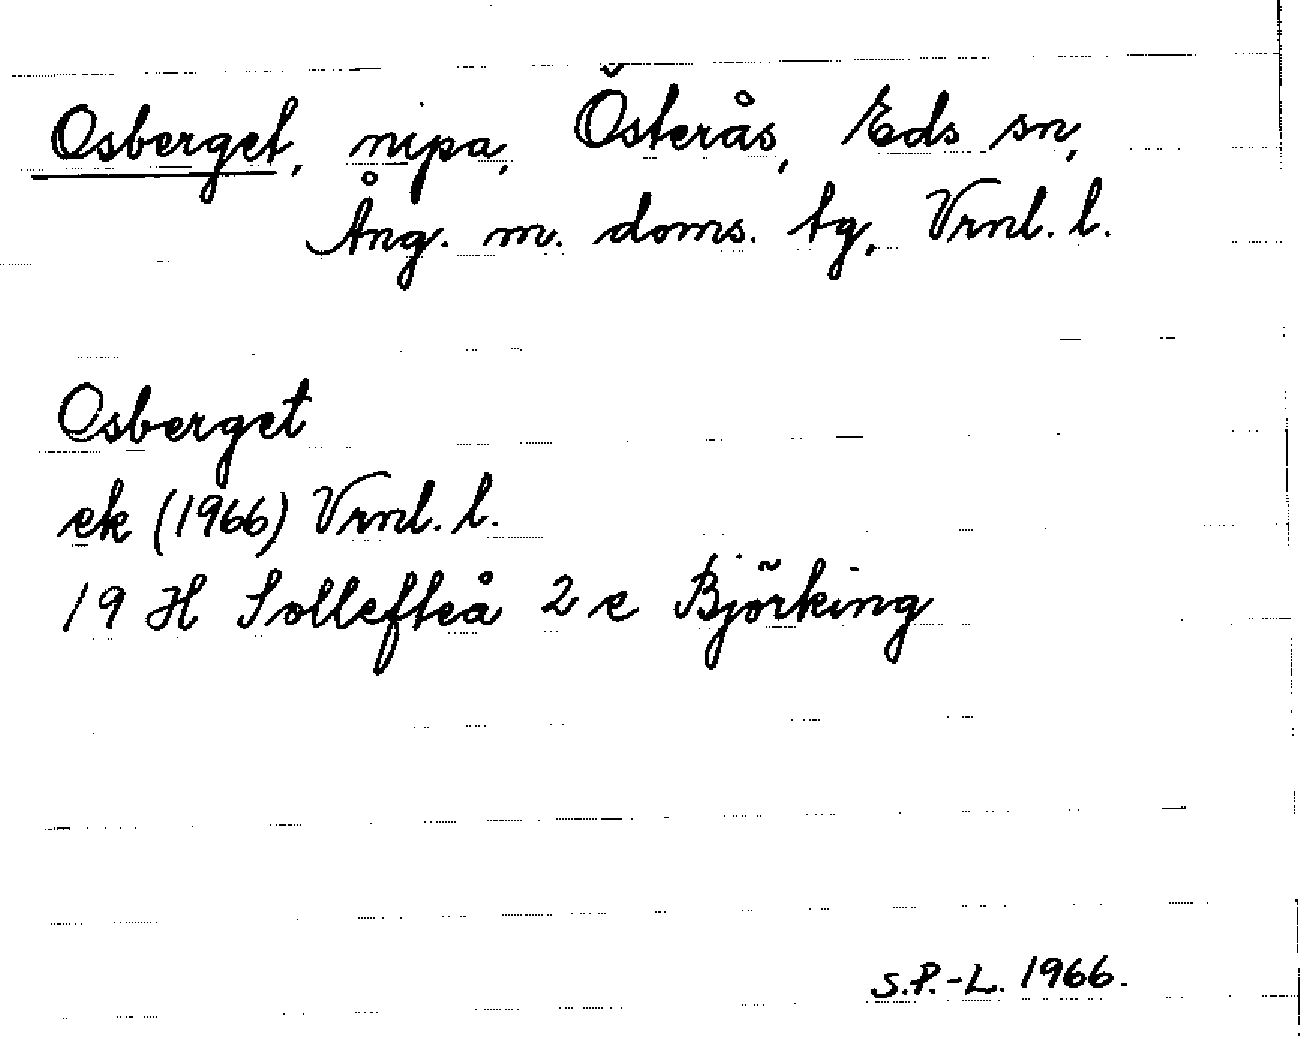 Osberget, nipa, Österås, Eds sn,
Ång. m. doms. tg, Vrnl. l.
Osberget
ek (1966) Vrnl. l.
19 H Sollefteå 2 e Björking
S.P.-L. 1966.